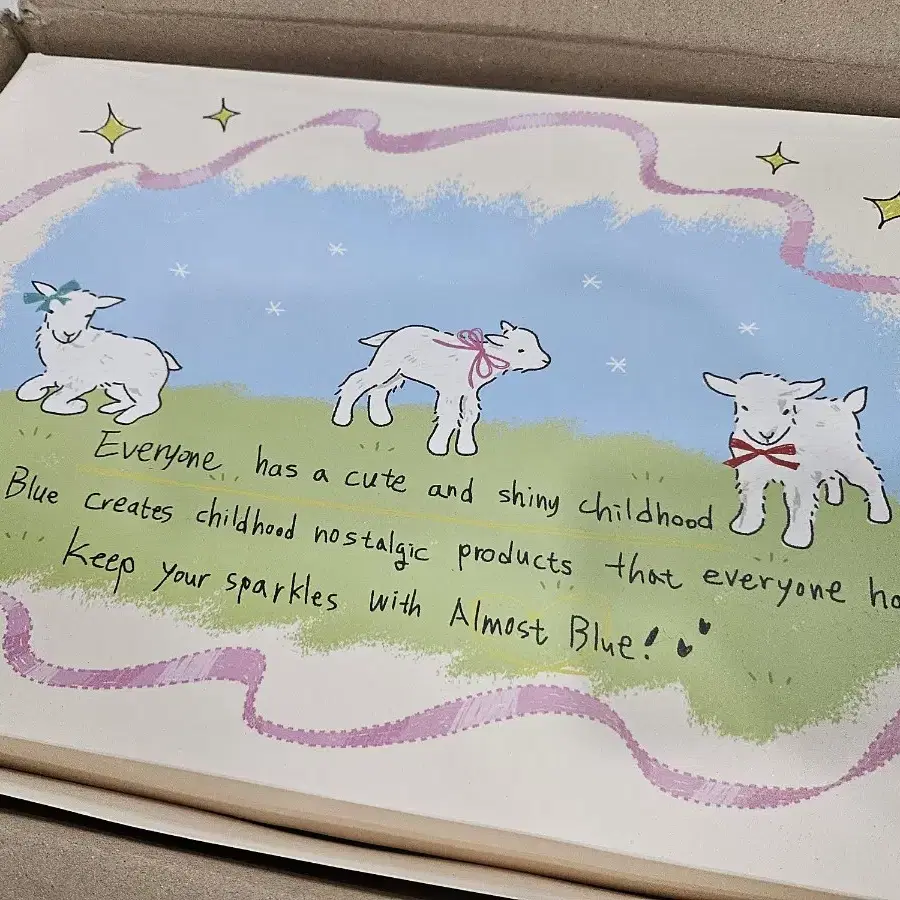 Everyone has a cute and shiny childhood
Blue creates childhood nostalgic products that everyone
Keep your sparkles with Almost Blue!